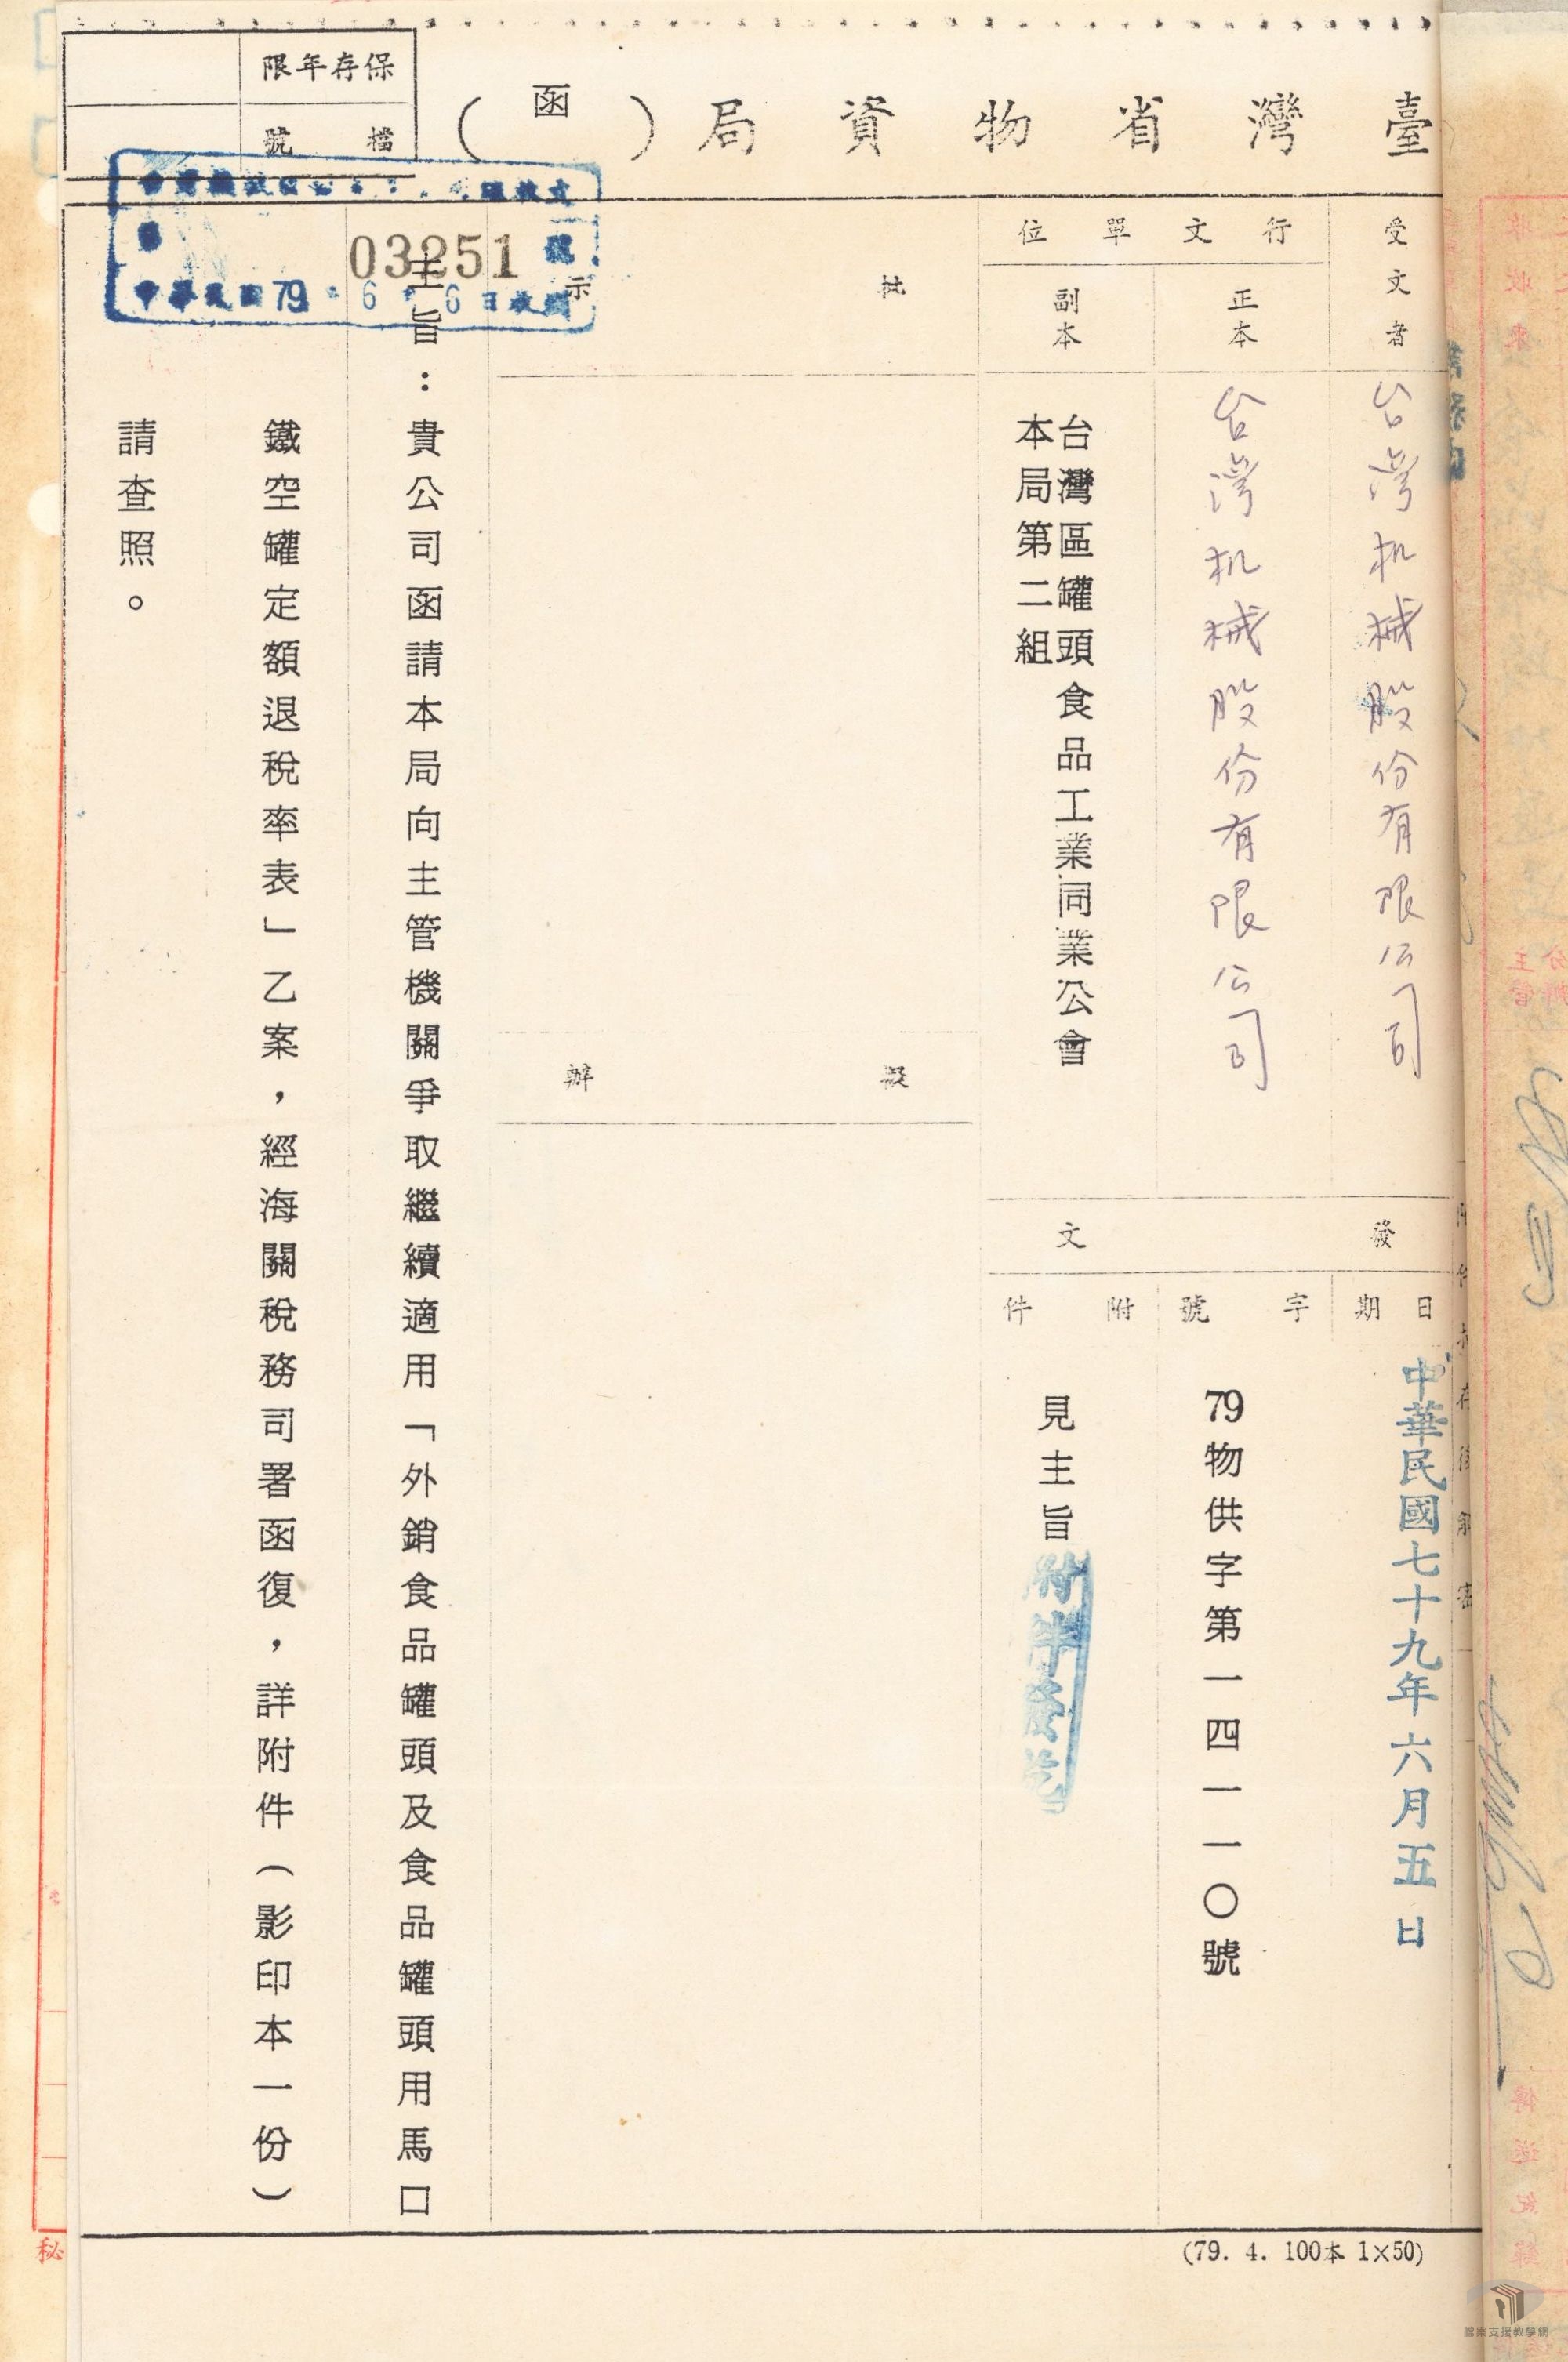 臺灣省物資局（函）
保存年限
檔號
受文者
台灣机械股份有限公司
行文單位
正本
台灣机械股份有限公司
副本
台灣區罐頭食品工業同業公會
本局第二組
發文
日期
中華民國七十九年六月五日
字號
79物供字第一四一一〇號
附件
見主旨
批示
擬辦
03251
中華民國79 6 6日收
主旨：貴公司函請本局向主管機關爭取繼續適用「外銷食品罐頭及食品罐頭用馬口
鐵空罐定額退稅率表」乙案，經海關稅務司署函復，詳附件（影印本一份）
請查照。
(79. 4. 100本 1×50)
秘
檔案支援教學網